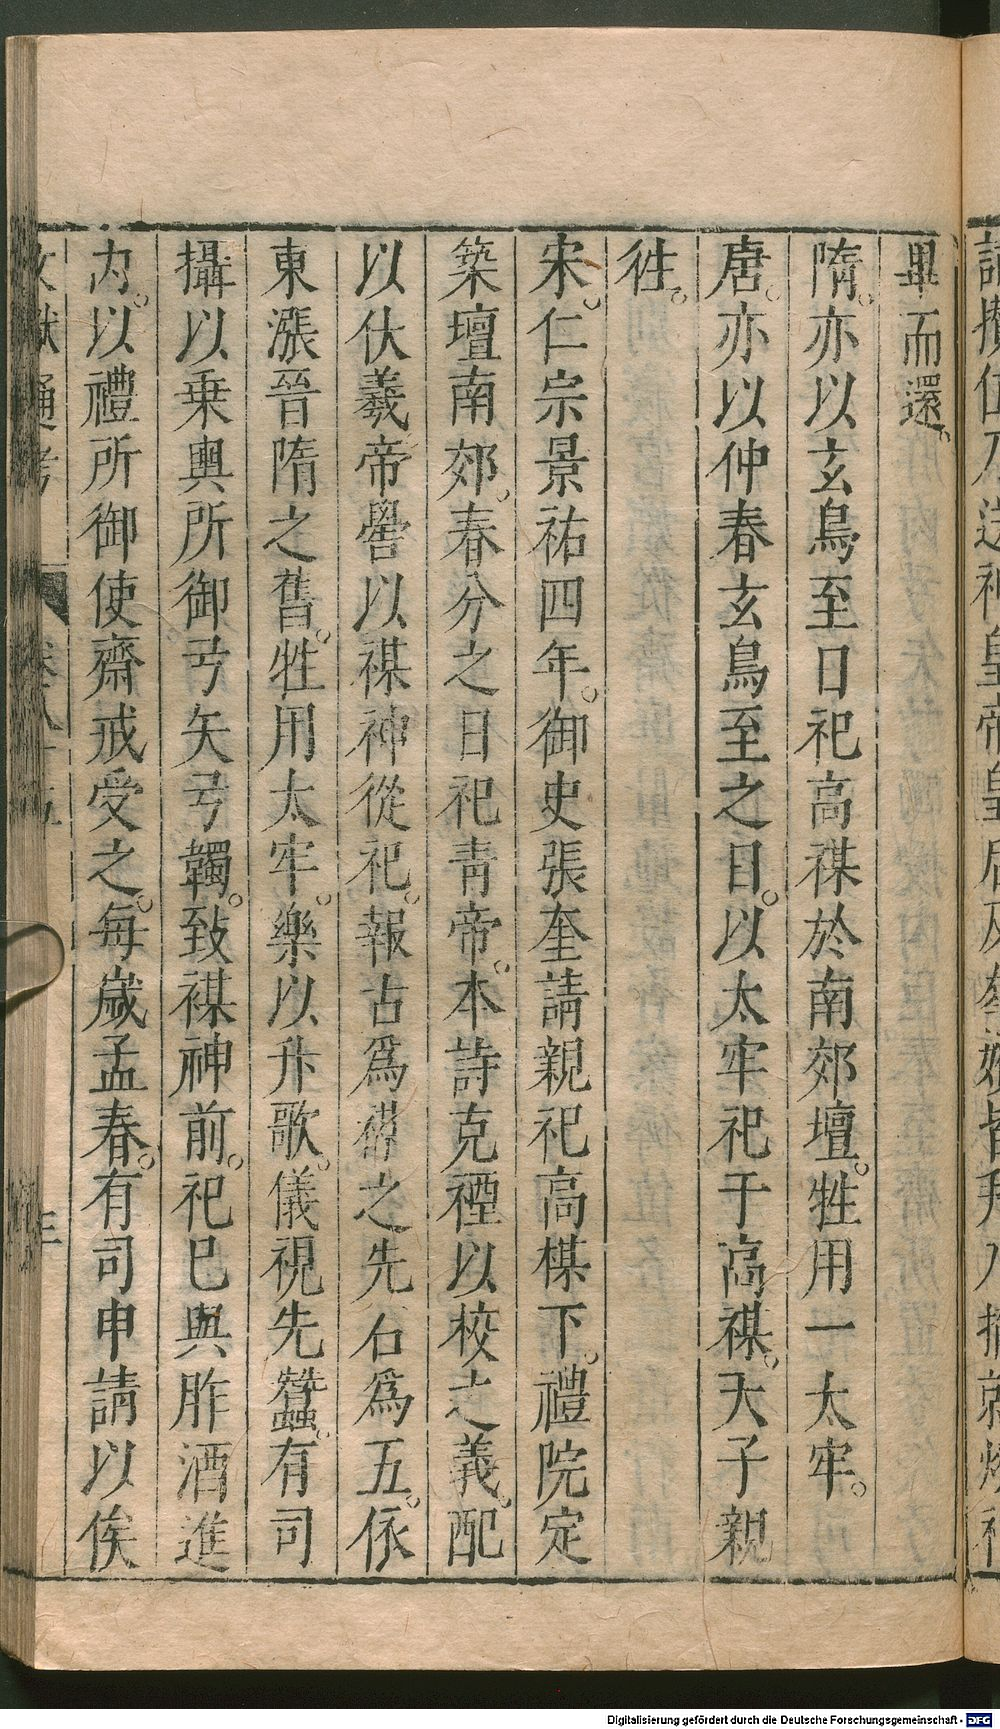 畢而還。
隋。亦以玄鳥至日祀高禖於南郊壇。牲用一太牢。
唐。亦以仲春玄鳥至之日。以太牢祀于高禖。天子親
徃。
宋。仁宗景祐四年。御史張奎請親祀高禖下。禮院定
築壇南郊。春分之日祀青帝。本詩克禋以祓之義。配
以伏羲帝嚳以禖神從祀。報古爲禖之先石爲五。依
東漲晉隋之舊。牲用太牢。樂以升歌。儀視先蠶。有司
攝以乗輿所御弓矢弓韣。致禖神前。祀已與胙酒進
内。以禮所御使齋戒受之。每歳孟春。有司申請以俟
文獻通考 卷八十五
Digitalisierung gefördert durch die Deutsche Forschungsgemeinschaft - DFG